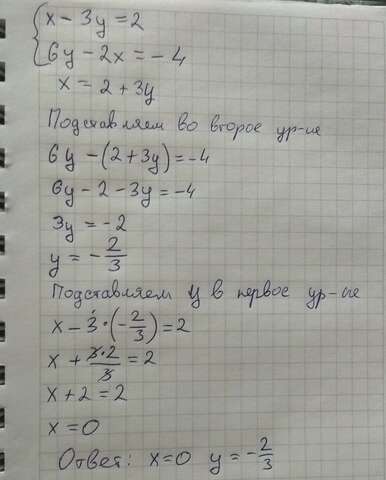 x - 3y = 2
6y - 2x = - 4
x = 2 + 3y
Подставляем во второе ур-ие
6y - (2 + 3y) = -4
6y - 2 - 3y = -4
3y = -2
y = - 2/3
Подставляем y в первое ур-ие
x - 3 · (- 2/3) = 2
x + 3·2/3 = 2
x + 2 = 2
x = 0
Ответ: x = 0 y = - 2/3